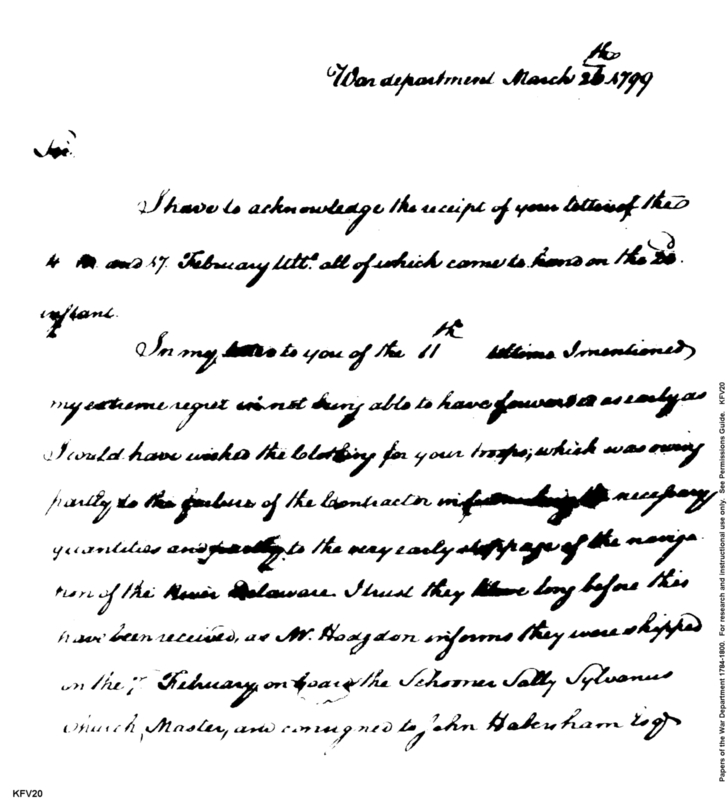 War department March 26th 1799
Sir.
I have to acknowledge the receipt of your letters of the
4 and 17. February Ulto. all of which came to hand on the
instant.
In my to you of the 11th ultimo I mentioned
my extreme regret in not being able to have forwarded as early as
I could have wished the Clothing for your troops, which was owing
partly to the failure of the Contractor in furnishing the necessary
quantities and partly to the very early stoppage of the naviga
tion of the River Delaware. I trust they have long before this
have been received, as Mr. Hodgdon informs they were shipped
on the 7 February on board the Schooner Sally Sylvanus
Church, Master, and consigned to John Habersham Esqr
KFV20
Papers of the War Department 1784-1800. For research and instructional use only. See Permissions Guide. KFV20